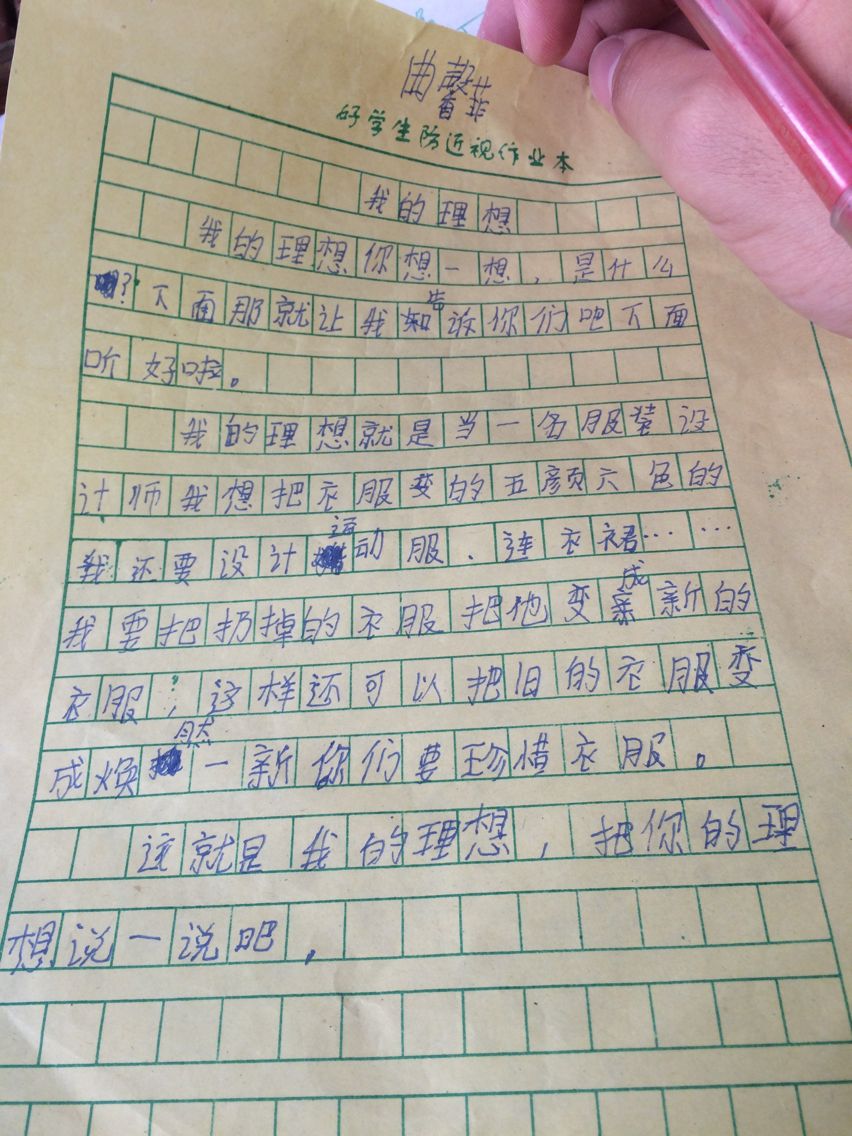 曲馨菲
好学生防近视作业本
我的理想
我的理想你想一想，是什么
？下面那就让我告诉你们吧下面
听好啦。
我的理想就是当一名服装设
计师我想把衣服变的五颜六色的
我还要设计运动服、连衣裙……
我要把扔掉的衣服把他变成新的
衣服，这样还可以把旧的衣服变
成焕然一新你们要珍惜衣服。
这就是我的理想，把你的理
想说一说吧，